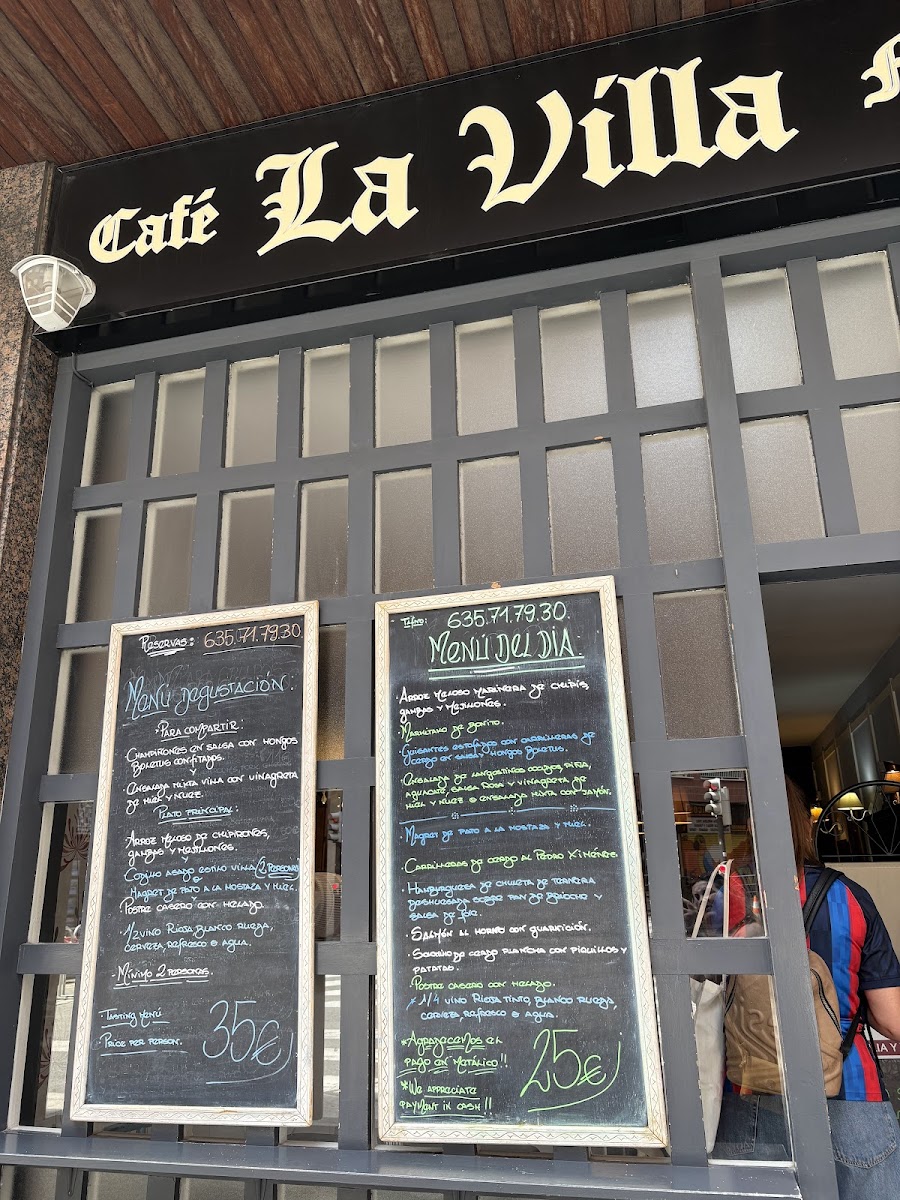 Café La Villa
RESERVAS: 635.71.79.30
MENÚ DEGUSTACIÓN:
PARA COMPARTIR:
CHAMPIÑONES EN SALSA CON HONGOS
BOLETUS CONFITADOS.
Y
ENSALADA MIXTA VILLA CON VINAGRETA
DE MIEL Y NUEZ.
PLATO PRINCIPAL:
ARROZ MELOSO DE CHIPIRONES,
GAMBAS Y MEJILLONES.
Y
CODILLO ASADO ESTILO VILLA (2 PERSONAS)
MAGRET DE PATO A LA MOSTAZA Y MIEL.
POSTRE CASERO CON HELADO.
1/2 VINO RIOJA BLANCO RUEDA,
CERVEZA, REFRESCO O AGUA.
- MÍNIMO 2 PERSONAS.
TASTING MENÚ
PRICE PER PERSON.
35€
TLFNO: 635.71.79.30.
MENÚ DEL DÍA:
· ARROZ MELOSO MARINERA DE CHIPIS,
GAMBAS Y MEJILLONES.
· MARMITAKO DE BONITO.
· GUISANTES ESTOFADOS CON CARRILLERAS DE
CERDO EN SALSA Y HONGOS BOLETUS.
· ENSALADA DE LANGOSTINOS COCIDOS, PIÑA,
AGUACATE, SALSA ROSA Y VINAGRETA DE
MIEL Y NUEZ O ENSALADA MIXTA CON JAMÓN.
· MAGRET DE PATO A LA MOSTAZA Y MIEL.
CARRILLERAS DE CERDO AL PEDRO XIMÉNEZ
· HAMBURGUESA DE CHULETA DE TERNERA
DESHUESADA SOBRE PAN DE BRIOCHE Y
SALSA DE
· SALMÓN AL HORNO CON GUARNICIÓN.
· SOLOMO DE CERDO PLANCHA CON PIQUILLOS Y
PATATAS.
POSTRE CASERO CON HELADO.
* 1/4 VINO RIOJA TINTO, BLANCO RUEDA,
CERVEZA, REFRESCO O AGUA.
* AGRADECEMOS EL
PAGO EN METÁLICO!!
* WE APPRECIATE
PAYMENT IN CASH!!
25€